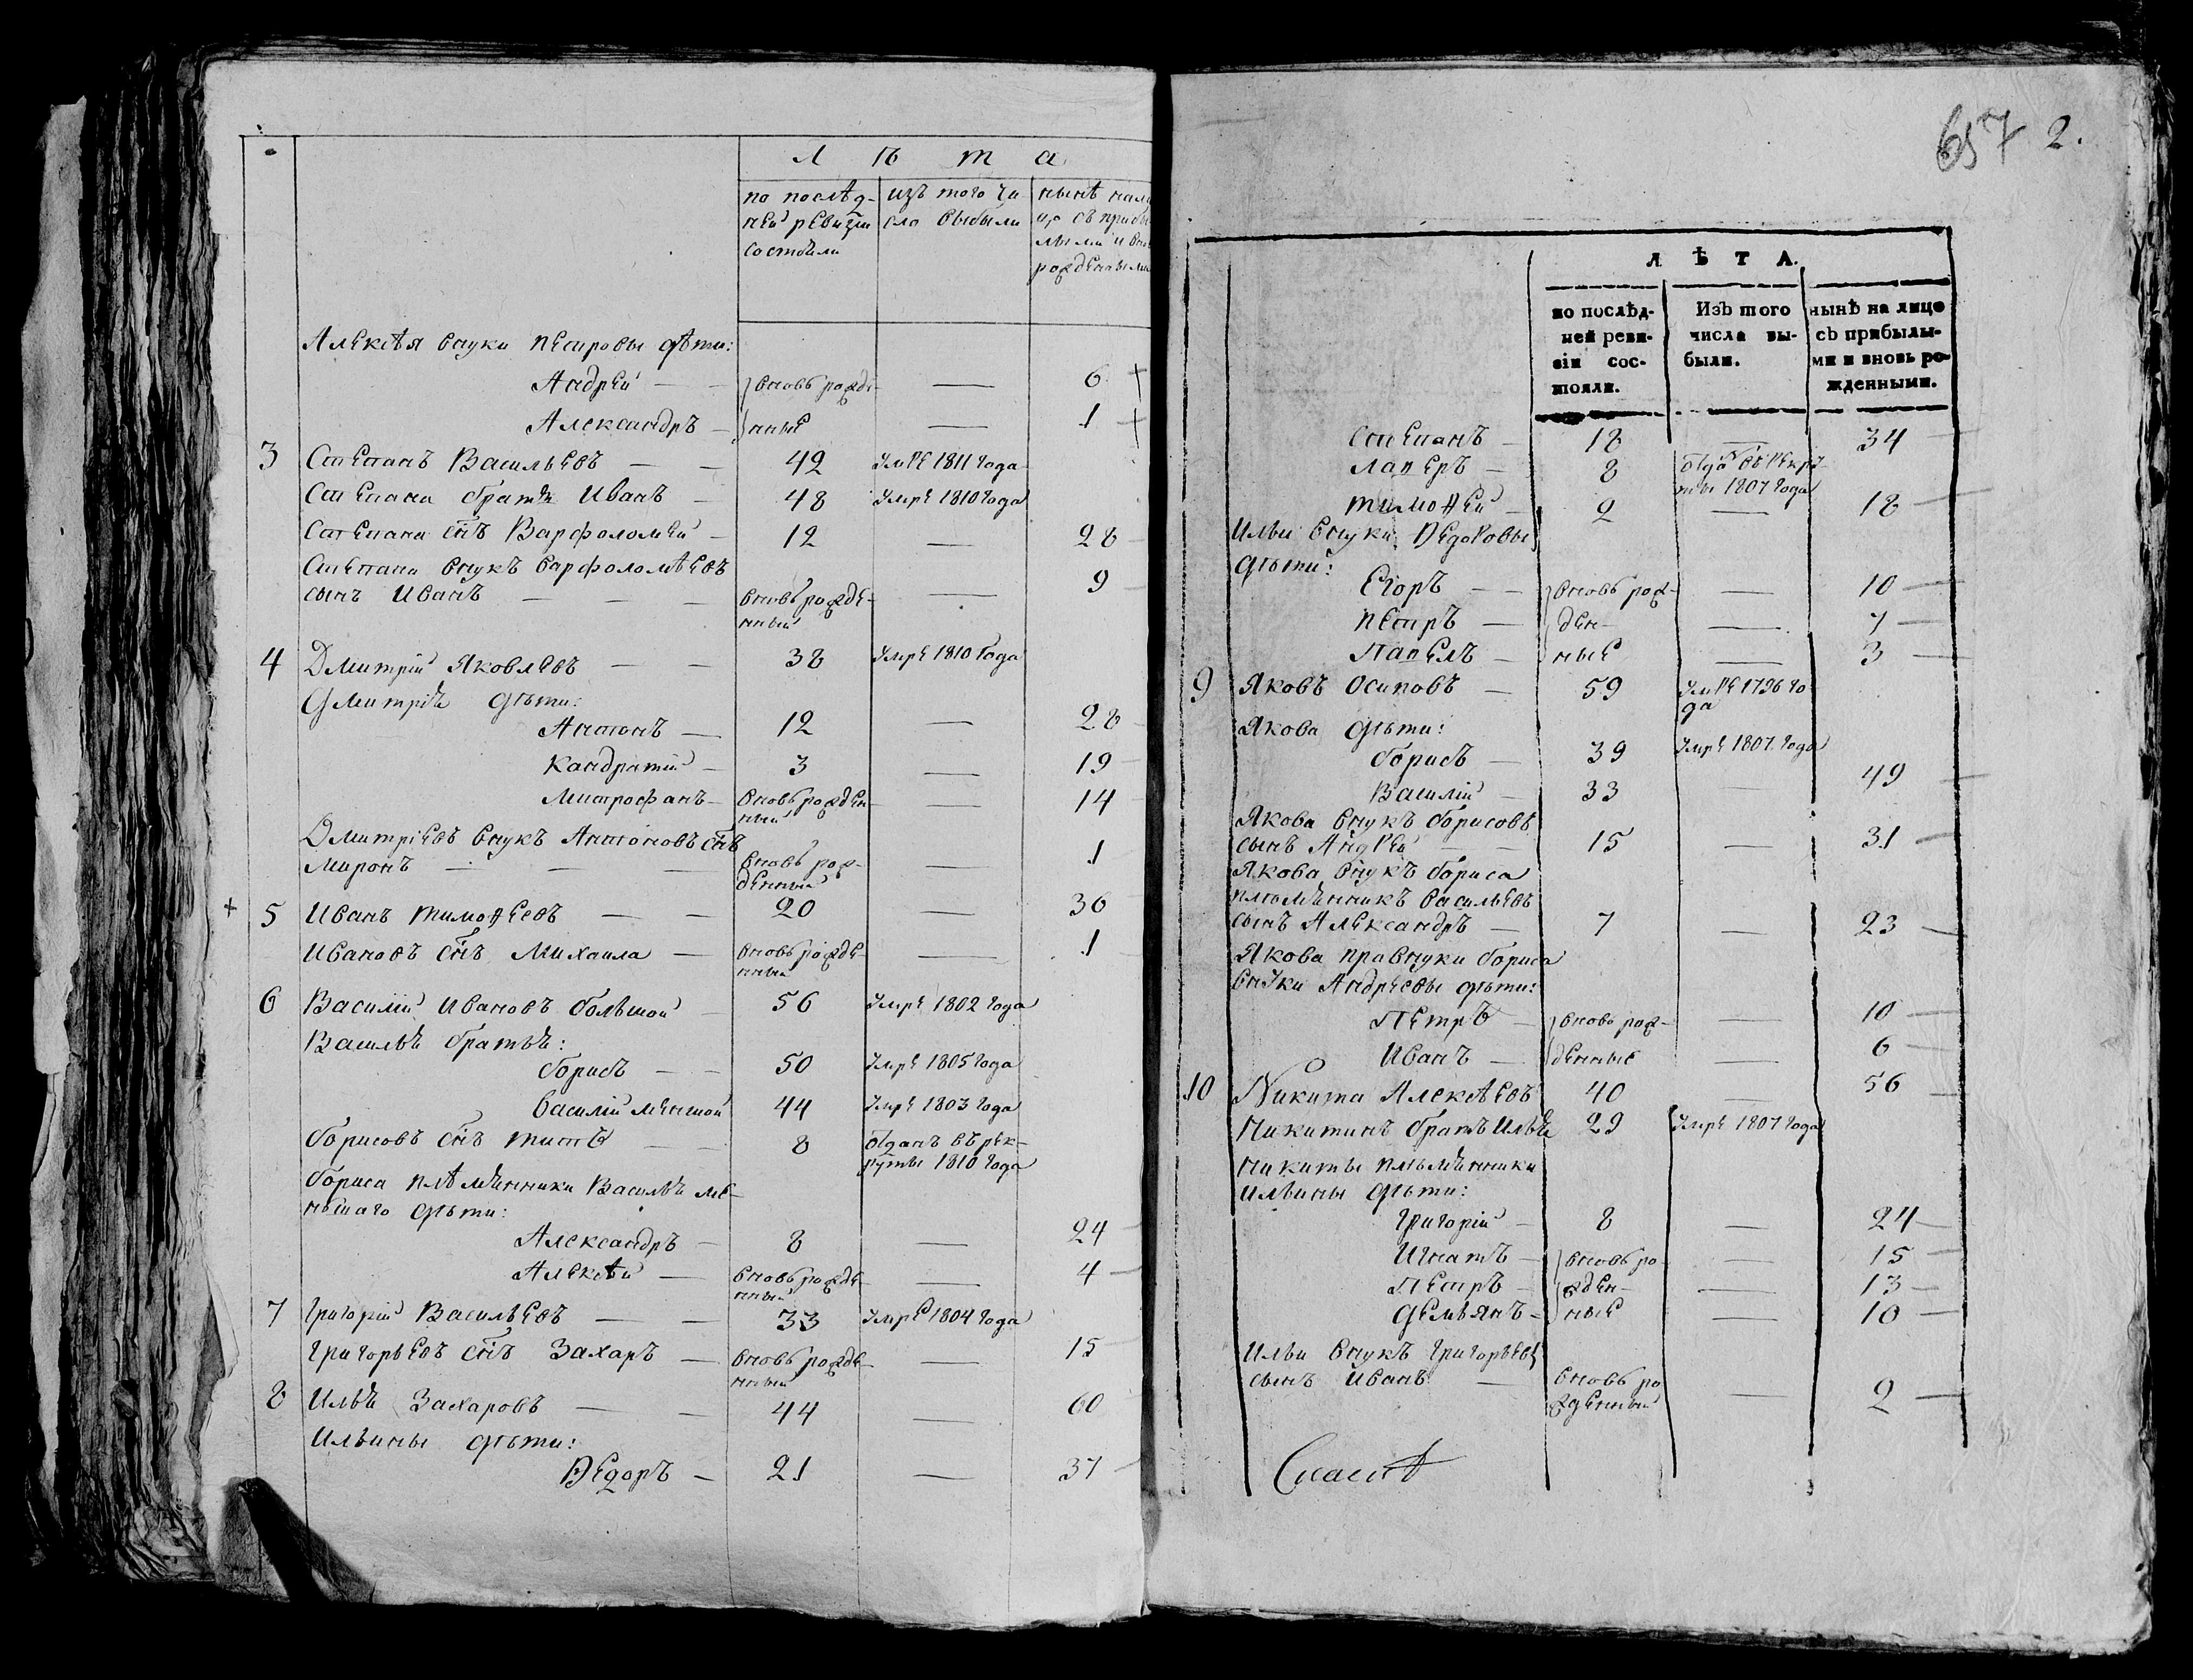 Л ѣ т а
по послѣд- изъ того чи- нынѣ нали
ней ревизіи сло выбыли цо съ прибы
состояли лыми и вно
рожденными
Алексѣя внуки Петровы дѣти:
Андрей — вновь рожде- — 6 +
Александръ — нные — 1 +
3 Степанъ Васильевъ — — 42 умре 1811 года
Степана братъ Иванъ — 48 умре 1810 года
Степана снъ Варфоломей — 12 — 28
Степана внукъ Варфоломѣевъ
сынъ Иванъ — — — вновь рожде- — 9
нный
4 Дмитрій Яковлевъ — — 38 умре 1810 года
Дмитрія дѣти:
Антонъ — 12 — 28
Кандратій — 3 — 19
Митрофанъ — вновь рожден — 14
ный
Дмитріевъ внукъ Антоновъ снъ
Миронъ — — — вновь рож- — 1
денный
+ 5 Иванъ Тимоѳеевъ — — 20 — 36
Ивановъ снъ Михаила — вновь рожде- — 1
нный
6 Василій Ивановъ большой — 56 умре 1802 года
Василья братья:
Борисъ — — 50 умре 1805 года
Василій меншой 44 умре 1803 года
Борисовъ снъ Титъ — — 8 отданъ въ рек-
руты 1810 года
Бориса племянники Василья ме-
ньшаго дѣти:
Александръ — 8 — 24
Алексѣй — вновь рожде- — 4
нный
7 Григорій Васильевъ — — 33 умре 1804 года
Григорьевъ снъ Захаръ — вновь рожде- — 15
нный
8 Илья Захаровъ — — 44 — 60
Ильины дѣти:
Ѳедоръ — 21 — 37
657 2.
Л Ѣ Т А.
по послѣд- Изъ того нынѣ на лицо
ней реви- числа вы- съ прибылы-
зіи сос- были. ми и вновь ро-
тояли. жденными.
Степанъ — 18 — 34
Лаверъ — 8 отда въ рекру-
ты 1807 года
Тимоѳей — 2 — 18
Ильи внуки Ѳедоровы
дѣти:
Егоръ — — вновь рож- — 10
Петръ — ден- — 7
Павелъ — ные — 3
9 Яковъ Осиповъ — 59 умре 1796 го
да
Якова дѣти:
Борисъ — 39 умре 1807 года
Василій — 33 — 49
Якова внукъ Борисовъ
сынъ Андрей — — 15 — 31
Якова внукъ Бориса
племянникъ Васильевъ
сынъ Александръ — 7 — 23
Якова правнуки Бориса
внуки Андреевы дѣти:
Петръ — вновь рож- — 10
Иванъ — денные — 6
10 Никита Алексѣевъ 40 — 56
Никитинъ братъ Илья 29 умре 1807 года
Никиты племянники
Ильины дѣти:
Григорій — 8 — 24
Игнатъ — вновь ро — 15
Петръ — жден- — 13
Демьянъ — ные — 10
Ильи внукъ Григорьевъ
сынъ Иванъ — вновь ро — 2
жденный